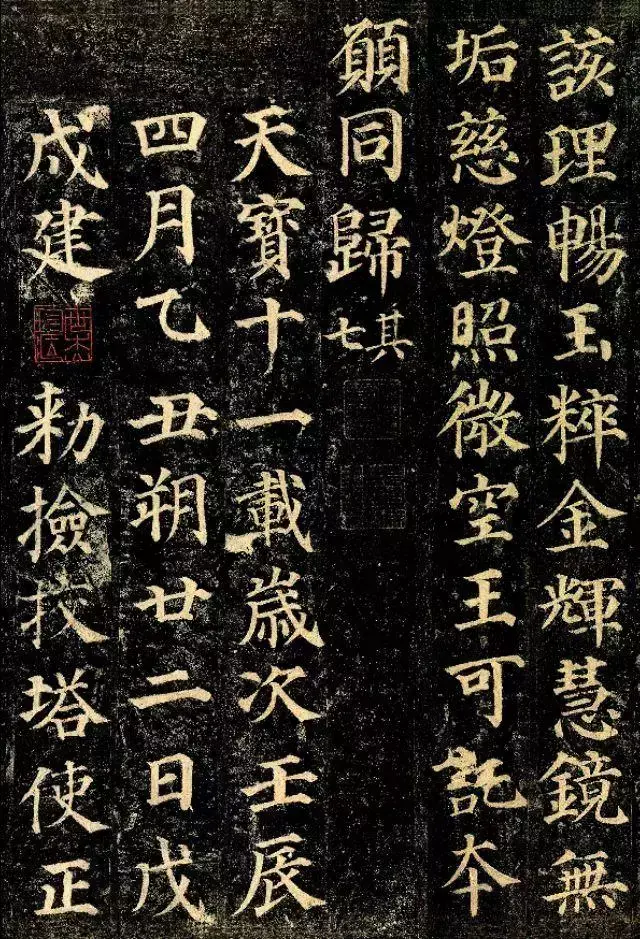 該理暢玉粹金輝慧鏡無
垢慈燈照微空王可託本
願同歸 其七
天寶十一載歲次壬辰
四月乙丑朔廿二日戊
戌建 勑撿挍塔使正